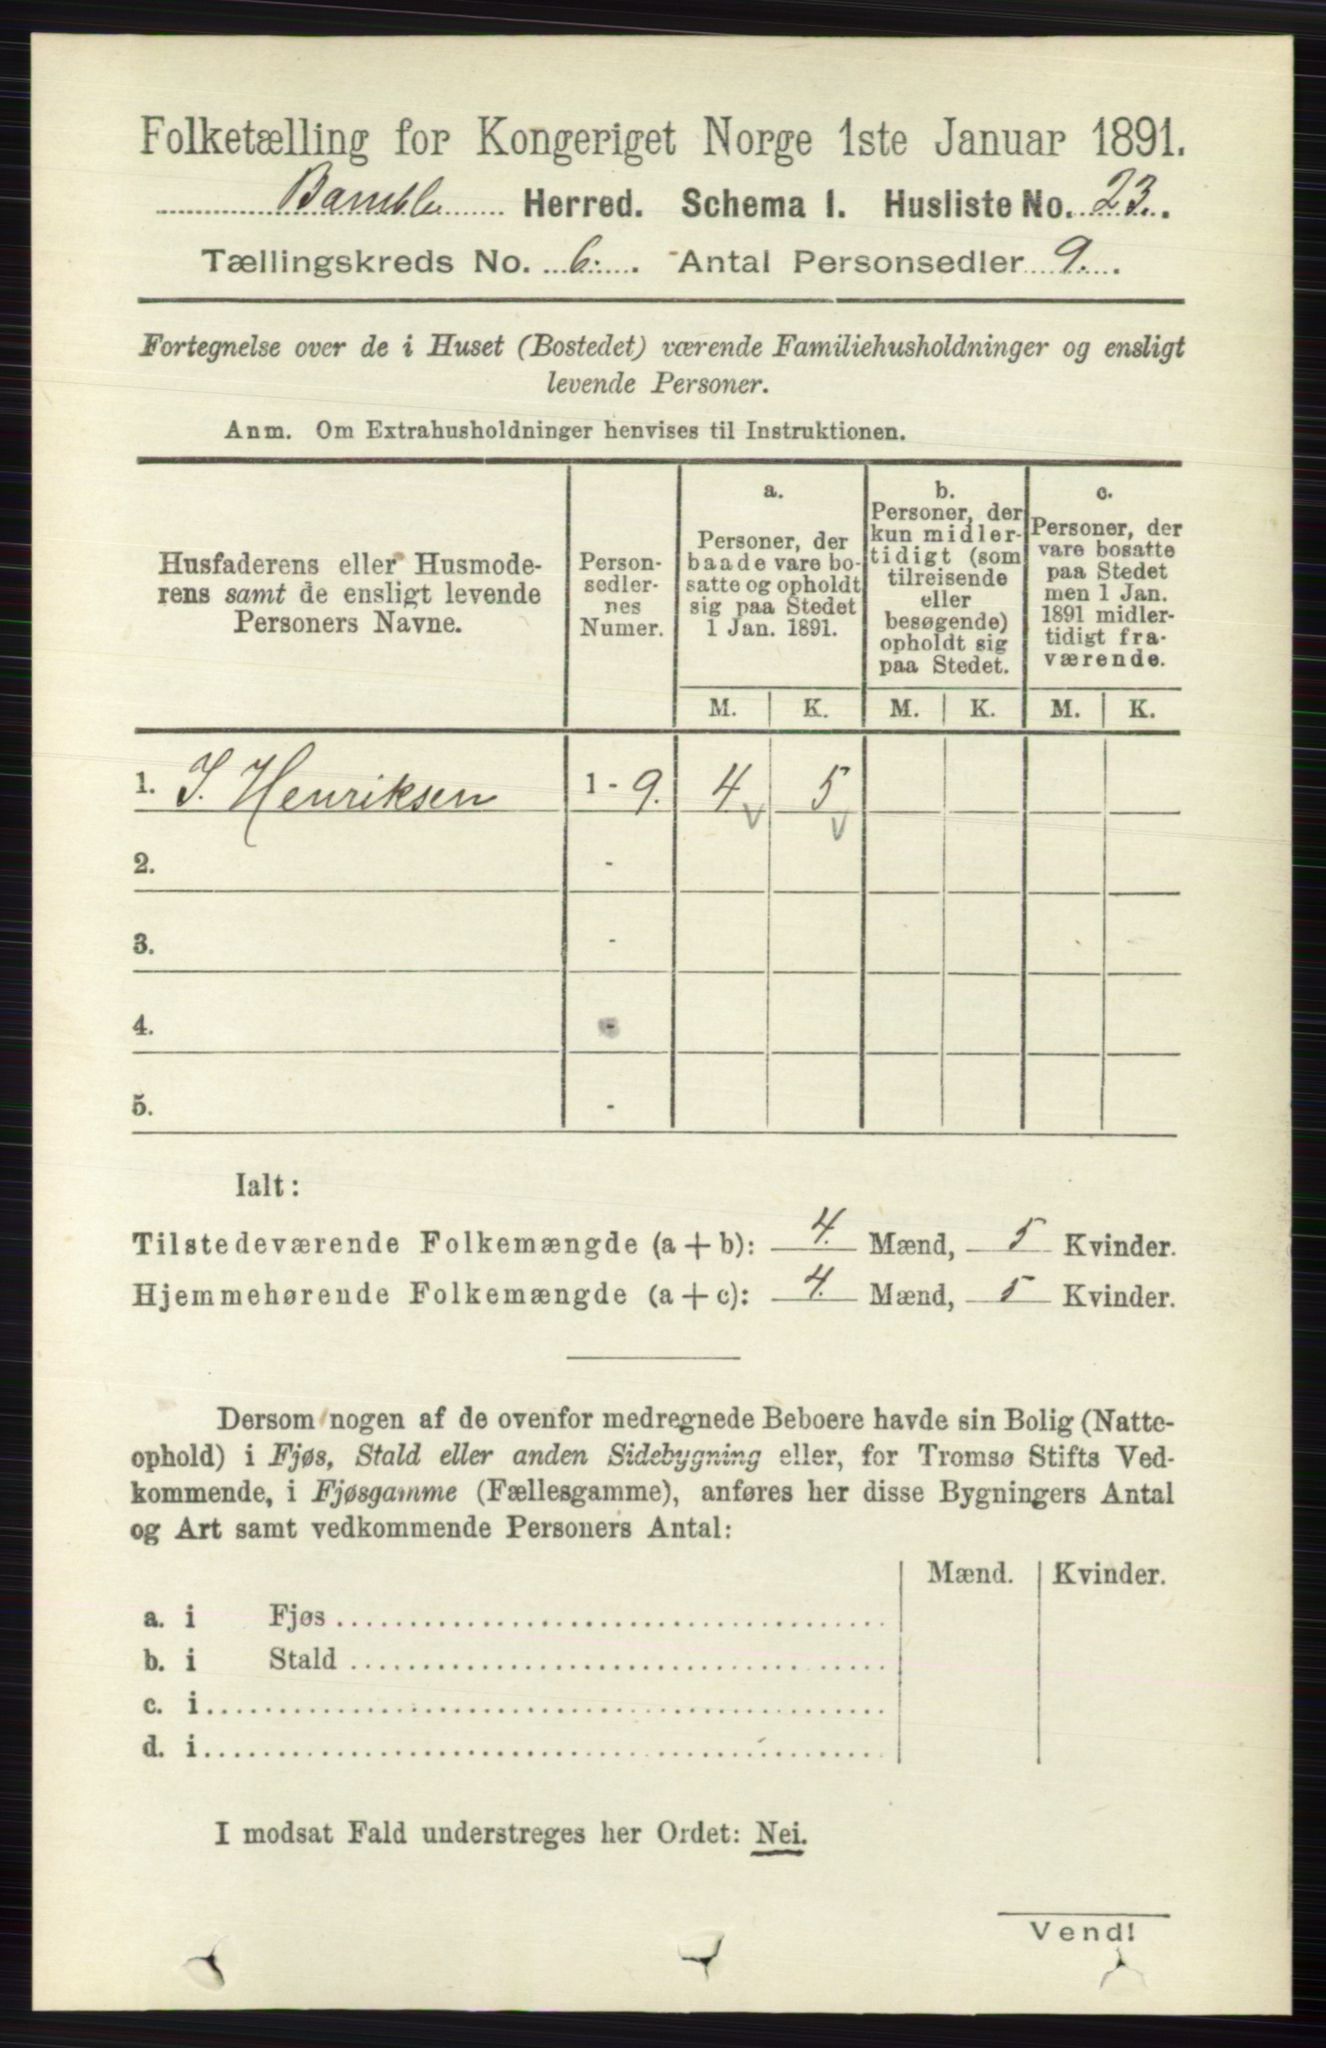 Folketælling for Kongeriget Norge 1ste Januar 1891.
Bamble Herred. Schema I. Husliste No. 23.
Tællingskreds No. 6. Antal Personsedler 9.
Fortegnelse over de i Huset (Bostedet) værende Familiehusholdninger og ensligt
levende Personer.
Anm. Om Extrahusholdninger henvises til Instruktionen.
Husfaderens eller Husmode-
rens samt de ensligt levende
Personers Navne.
Person-
sedler-
nes
Numer.
a.
Personer, der
baade vare bo-
satte og opholdt
sig paa Stedet
1 Jan. 1891.
b.
Personer, der
kun midler-
tidigt (som
tilreisende
eller
besøgende)
opholdt sig
paa Stedet.
c.
Personer, der
vare bosatte
paa Stedet
men 1 Jan.
1891 midler-
tidigt fra-
værende.
M. K. M. K. M. K.
1. I. Henriksen 1 - 9. 4 5
2. -
3. -
4. -
5. -
Ialt:
Tilstedeværende Folkemængde (a + b): 4. Mænd, 5 Kvinder.
Hjemmehørende Folkemængde (a + c): 4. Mænd, 5 Kvinder.
Dersom nogen af de ovenfor medregnede Beboere havde sin Bolig (Natte-
ophold) i Fjøs, Stald eller anden Sidebygning eller, for Tromsø Stifts Ved-
kommende, i Fjøsgamme (Fællesgamme), anføres her disse Bygningers Antal
og Art samt vedkommende Personers Antal:
Mænd. Kvinder.
a. i Fjøs
b. i Stald
c. i
d. i
I modsat Fald understreges her Ordet: Nei.
Vend!